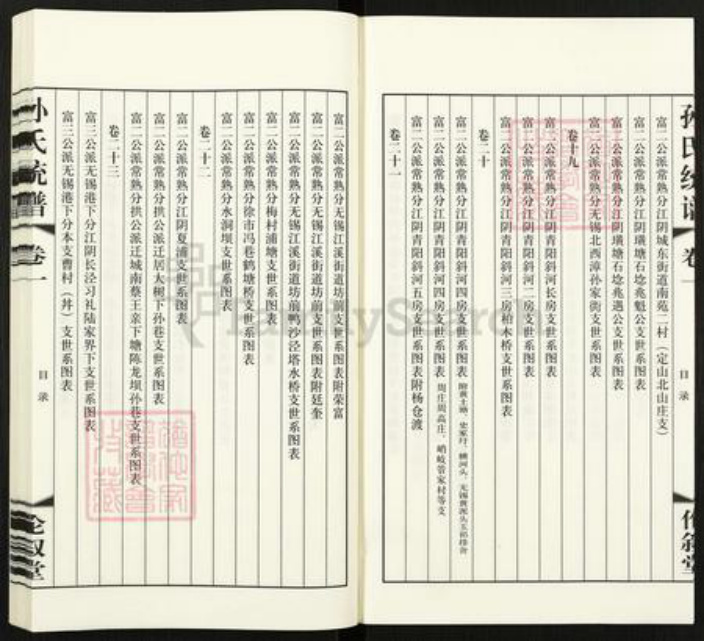 富二公派常熟分江阴城东街道南苑二村（定山北山庄支）
富二公派常熟分江阴璜塘石埝兆魁公支世系图表
富二公派常熟分江阴璜塘石埝兆遇公支世系图表
富二公派常熟分无锡北西漳孙家街支世系图表
卷十九
富二公派常熟分江阴青阳斜河长房支世系图表
富二公派常熟分江阴青阳斜河二房支世系图表
富二公派常熟分江阴青阳斜河三房枱木桥支世系图表
卷二十
富二公派常熟分江阴青阳斜河四房支世系图表
富二公派常熟分江阴青阳斜河四房支世系图表 周庄周高庄、峭岐管家村等支
富二公派常熟分江阴青阳斜河五房支世系图表附杨仓渡
卷二十一
孙氏统谱 卷一
目录
伦叙堂
富二公派常熟分无锡江溪街道坊前支世系图表附荣富
富二公派常熟分无锡江溪街道坊前支世系图表附廷奎
富二公派常熟分无锡江溪街道坊前鸭沙泾塔水桥支世系图表
富二公派常熟分梅村浦塘支世系图表
富二公派常熟分徐市冯巷鹤塘桥支世系图表
富二公派常熟分水洞坝支世系图表
卷二十二
富二公派常熟分江阴夏浦支世系图表
富二公派常熟分拱公派迁居大树下孙巷支世系图表
富二公派常熟分拱公派迁城南蔡王亲下塘陈龙坝孙巷支世系图表
卷二十三
富三公派无锡港下分江阴长泾习礼陆家界下支世系图表
富三公派无锡港下分本支曹村（圤）支世系图表
孙氏统谱 卷一
目录
伦叙堂
FamilySearch